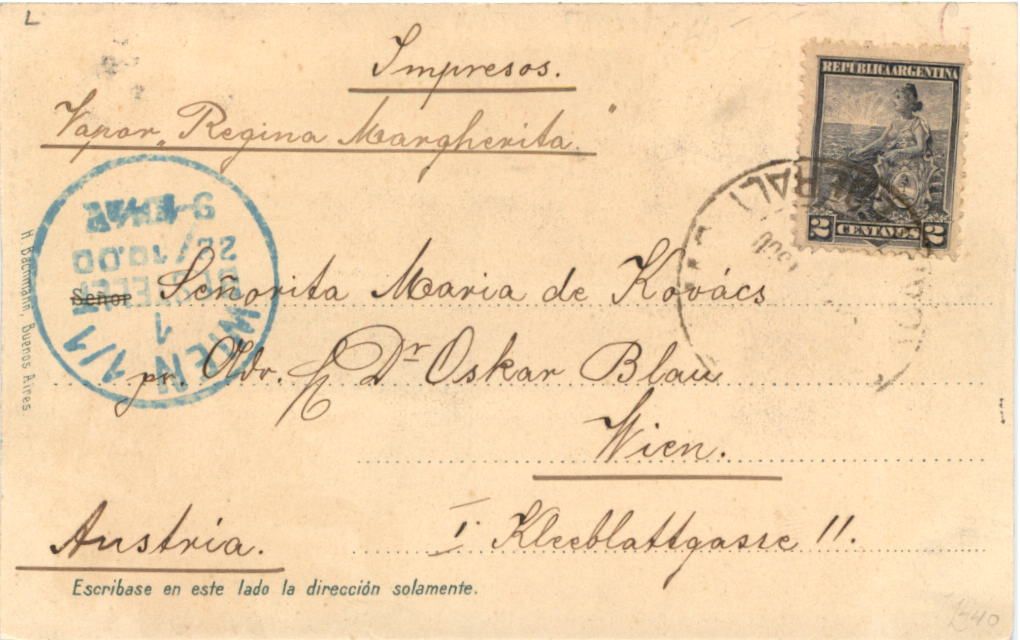 L
Impresos.
Vapor „Regina Margherita.“
REPUBLICA ARGENTINA
2 CENTAVOS 2
WIEN 1/1
1
BESTELLT
22/10.00
Señor Señorita Maria de Kovács
pr. Adr. Dr Oskar Blau
Wien.
Austria.
I. Kleeblattgasse 11.
Escribase en este lado la dirección solamente.
H. Bachmann, Buenos Aires.